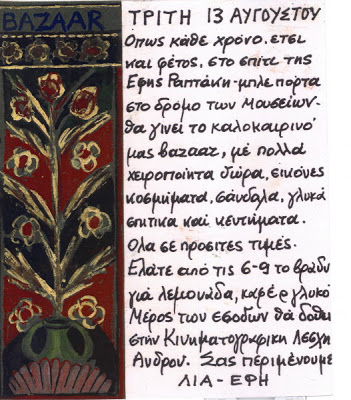 BAZAAR
ΤΡΙΤΗ 13 ΑΥΓΟΥΣΤΟΥ
Όπως κάθε χρόνο, έτσι
και φέτος, στο σπίτι της
Έφης Ραπτάκη-μπλε πόρτα
στο δρόμο των Μουσείων-
θα γίνει το καλοκαιρινό
μας bazaar, με πολλά
χειροποίητα δώρα, εικόνες
κοσμήματα, σάνδαλα, γλυκά
σπιτικά και κεντήματα.
Όλα σε προσιτές τιμές.
Ελάτε από τις 6-9 το βράδυ
για λεμονάδα, καφέ & γλυκό
Μέρος των εσόδων θα δοθεί
στην Κινηματογραφική Λέσχη
Άνδρου. Σας περιμένουμε
ΛΙΑ-ΕΦΗ